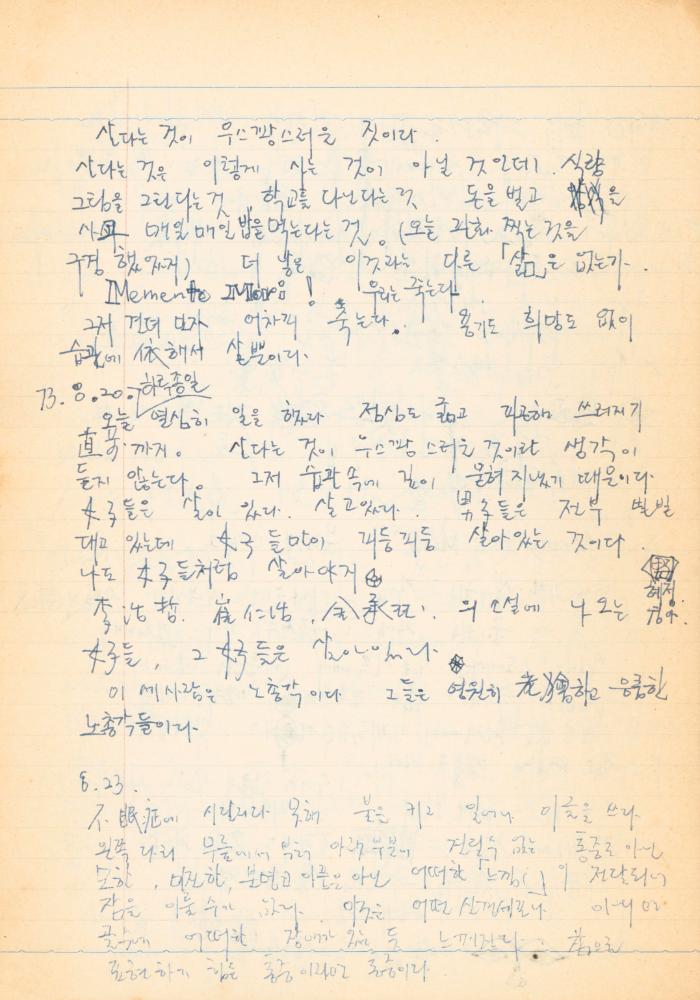 산다는 것이 우스꽝스러운 짓이라.
산다는 것은 이렇게 사는 것이 아닐 것인데. 식량
그림을 그린다는 것, 학교를 다닌다는 것 돈을 벌고 을
매일 매일 밥을 먹는다는 것. (오늘 판화 찍는 것을
구경 했었지) 더 낳은 이것과는 다른 「삶」은 없는가.
Memento Mori! 우리는 죽는다
그저 견뎌 보자 어차피 죽는다. 용기도 희망도 없이
습관에 依해서 살뿐이다.
73. 8. 20. 하루종일
오늘 열심히 일을 했다 점심도 굶고 피곤해 쓰러지기
直前까지. 산다는 것이 우스꽝스러운 것이란 생각이
들지 않는다. 그저 습관속에 깊이 묻혀 지냈기 때문이다
女子들은 살아 있다. 살고있다. 男子들은 전부 빌빌
대고 있는데 女子들만이 피둥피둥 살아있는 것이다
나도 女子들처럼 살아야지
李浩哲. 崔仁浩, 金承玉. 의 소설에 나오는
女子들, 그 女子들은 살아있다.
이 세사람은 노총각이다 그들은 영원히 老獪하고 응큼한
노총각들이다.
8. 23.
不眠症에 시달리다 못해 불을 키고 일어나 이글을 쓰다.
왼쪽 다리 무릎에서 부터 아랫부분이 견딜수 없는 통증도 아닌
또한, 분명코 아픔은 아닌 어떠한 「느낌」이 전달되니
잠을 이룰 수가 없다. 어떤 신경세포나 아니면
골수에 어떠한 장애가 있는 듯 느껴진다.
표현하기 힘든 통증이라면 통증이다.